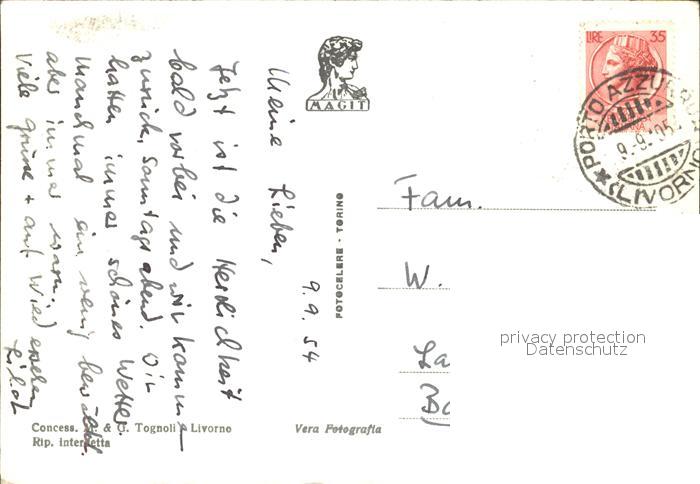 9. 9. 54
Meine Lieben,
Jetzt ist die Herrlichkeit
bald vorbei und wir kommen
zurück, Sonntag abend. Wir
hatten immer schönes Wetter.
Manchmal ein wenig bewölkt
aber immer warm.
Viele Grüsse + auf Wiedersehen
MAGIT
FOTOCELERE - TORINO
LIRE 35
PORTO AZZURRO
9.9.
(LIVORNO
Fam.
W.
La
Ba
privacy protection
Datenschutz
Concess. & G. Tognoli Livorno
Rip. interdetta
Vera Fotografia